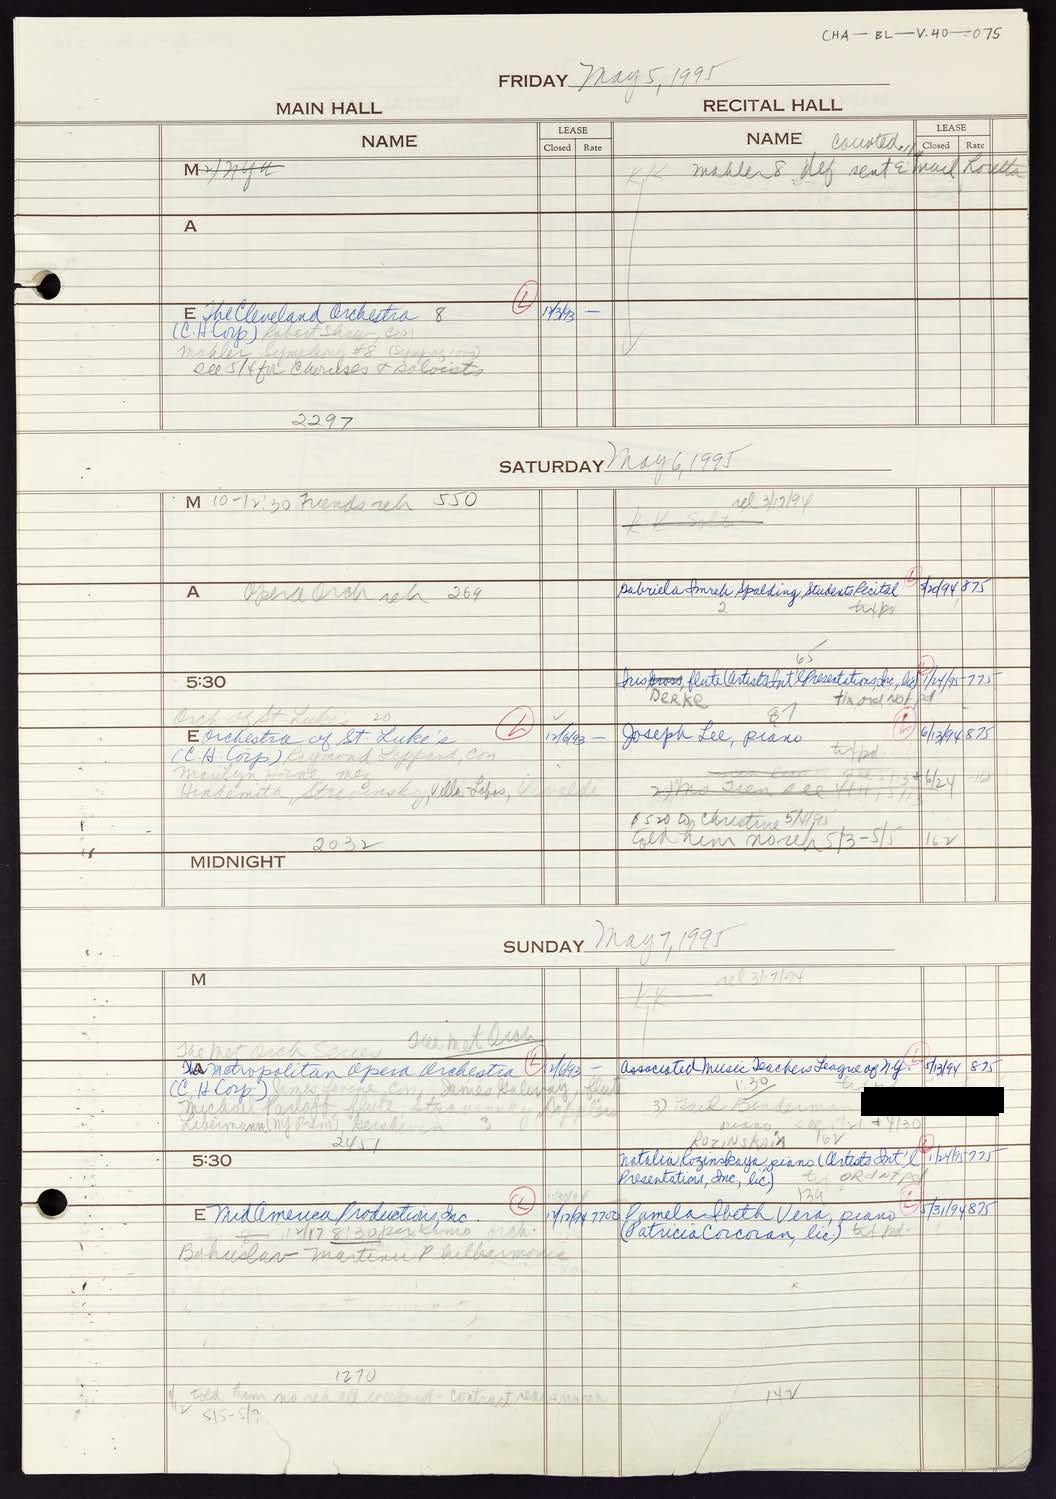 CHA-BL-V.40-075
FRIDAY May 5, 1995
MAIN HALL
RECITAL HALL
NAME
LEASE
Closed Rate
NAME
LEASE
Closed Rate
M
K/K Mahler 8 sent E mail Loretta
A
E The Cleveland Orchestra 8 L 12/3/93 —
(C.H. Corp) Robert Shaw, con
Mahler Symphony #8
see 5/4 for Choruses & Soloists
2297
SATURDAY May 6, 1995
M 10-12:30 Friends reh 550
rel 3/17/94
A Opera Orch reh 269
Gabriela Imreh Spalding Students Recital L 875
2 tx pd
65
5:30
Iris flute (Artists Int'l Presentations, Inc, lic) L 1/24/95 775
DERKE
tix ord not pd
Orch of St Luke's 20
87
E Orchestra of St. Luke's L 12/6/93 —
Joseph Lee, piano L 6/13/94 875
(C.H. Corp) Raymond Leppard, con
tx pd
Marilyn Horne, mez
Hindemith, Stravinsky, Villa-Lobos, Vivaldi
$520 Christine 5/4/95
told him no reh 5/3-5/5 162
2032
MIDNIGHT
SUNDAY May 7, 1995
M
rel 3/17/94
K/K
The Met Orch Series The Met Orch
A The Metropolitan Opera Orchestra L —
Associated Music Teachers League of N.Y. L 875
(C.H. Corp) James Levine con, James Galway, flute
1:30
Michael Parloff, flute Stravinsky
2451
ROZINSKAYA 162
5:30
Natalia Rozinskaya piano (Artists Int'l L 1/24/95 775
Presentations, Inc, lic) ORD NT pd
134
E MidAmerica Productions, Inc. L 12/12/94 7700
Pamela Ibeth Vera, piano L 5/31/94 875
(Patricia Corcoran, lic) tx pd
8:30
Bohuslav Martinu Philharmonic
1270
told him no reh all weekend - contract
5/5-5/7
142